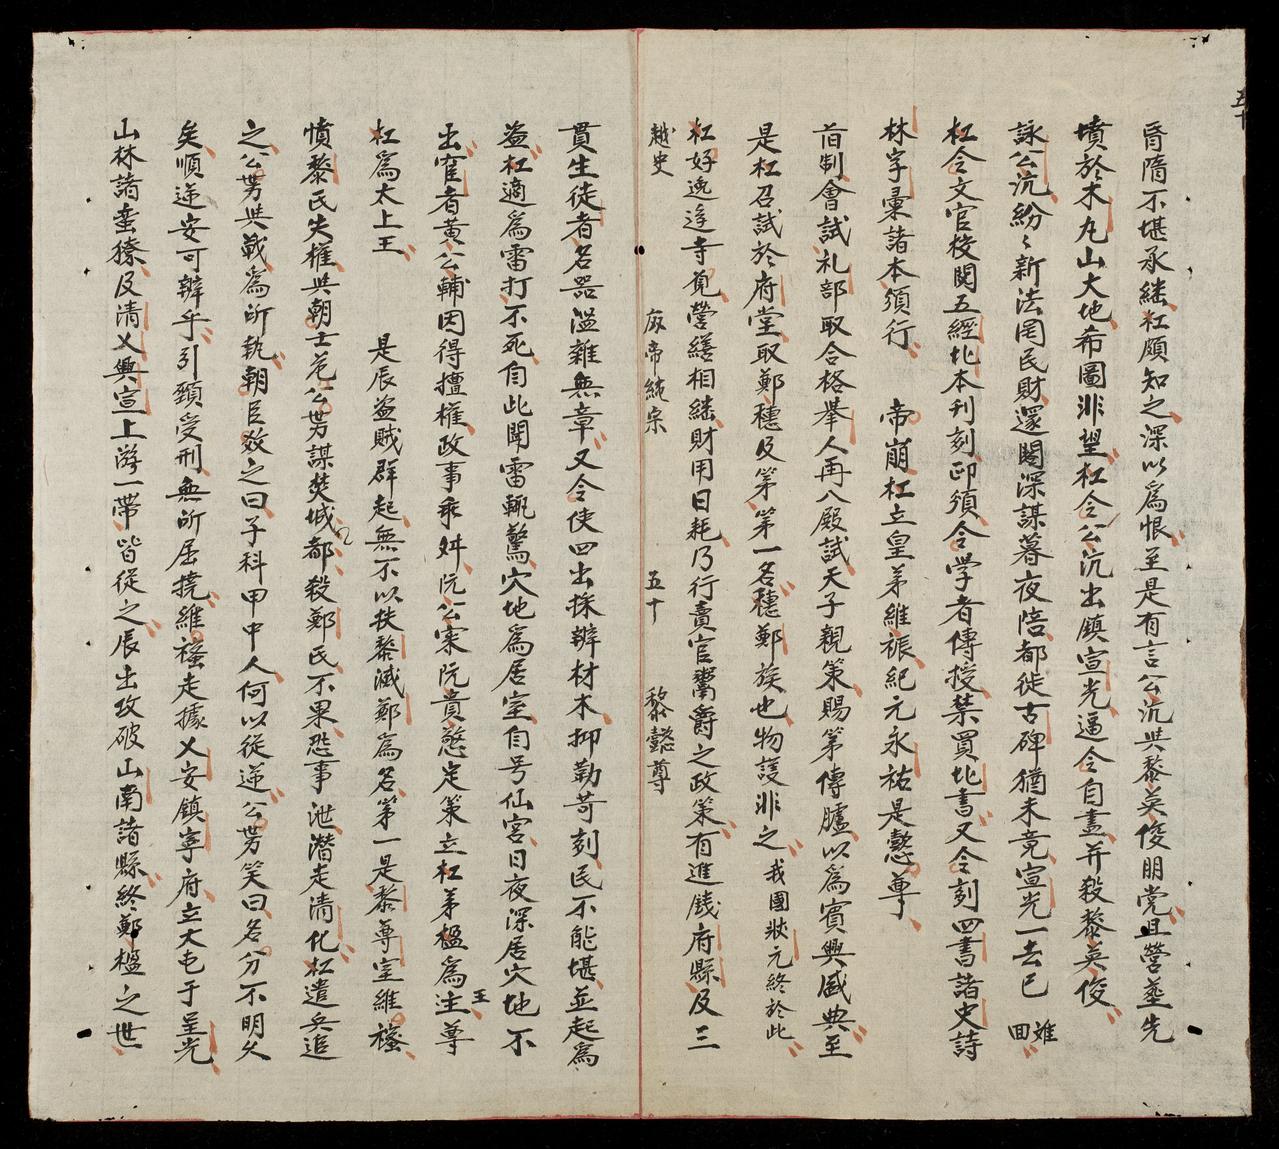 脣隋不堪承継杠頗知之深以爲恨至是有言公沆共黎英俊朋党且營塟先
墳於木凣山大地希圖非望杠令公沆出鎮宣光逼令自盡并殺黎英俊
詠公沆紛〻新法罔民財邃閣深謀暮夜陪都徒古碑猶未竟宣光一去已难回
杠令文官校閱五經北本刊刻印頒令学者傳授禁買北書又令刻四書諸史詩
林字彙諸本頒行 帝崩杠立皇弟維祳紀元永祐是懿尊
旧制會試礼部取合格举人再入殿試天子親策賜第傳臚以爲賓興盛典至
是杠召試於府堂取鄭穗及第第一名穗鄭族也物議非之我國狀元終於此
杠好逸遊寺覌營繕相継財用日耗乃行賣官鬻爵之政策有進銭府縣及三
越史 廢帝純宗 五十 黎懿尊
貫生徒者名器滥雜無章又令使四出採辦材木抑勒苛刻民不能堪並起爲
盗杠適爲雷打不死自此聞雷輒驚穴地爲居室自号仙宮日夜深居穴地不
出宦者黄公輔因得擅權政事乖舛阮公寀阮貴憼定策立杠弟楹爲主尊
王
杠爲太上王 是辰盗賊群起無不以扶黎滅鄭爲名第一是黎尊室維𥛭
憤黎民失權共朝士范公勢謀焚城都殺鄭民不果恐事泄潜走清化杠遣兵追
之公勢共戰爲所執朝臣效之曰子科甲中人何以從逆公勢笑曰名分不明久
矣順逆安可辨乎引頸受刑無所屈撓維𥛭走據乂安鎮寧府立大屯于呈光
山林諸蛮獠及清乂興宣上游一帶皆從之辰出攻破山南諸縣終鄭楹之世